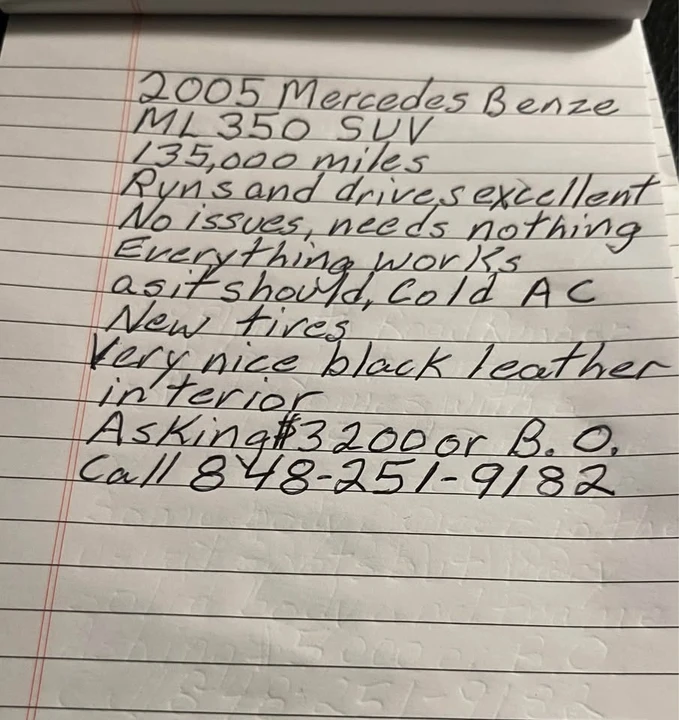 2005 Mercedes Benze
ML 350 SUV
135,000 miles
Runs and drives excellent
No issues, needs nothing
Everything works
as it should, Cold AC
New tires
Very nice black leather
interior
Asking $3200 or B.O.
Call 848-251-9182